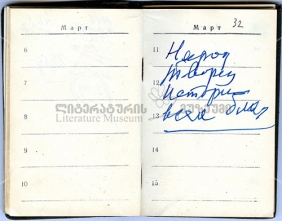 Март
6
7
8
9
10
Март
32
11
Народ
12
творец
истории
13
14
15
ლიტერატურის მუზეუმი
Literature Museum